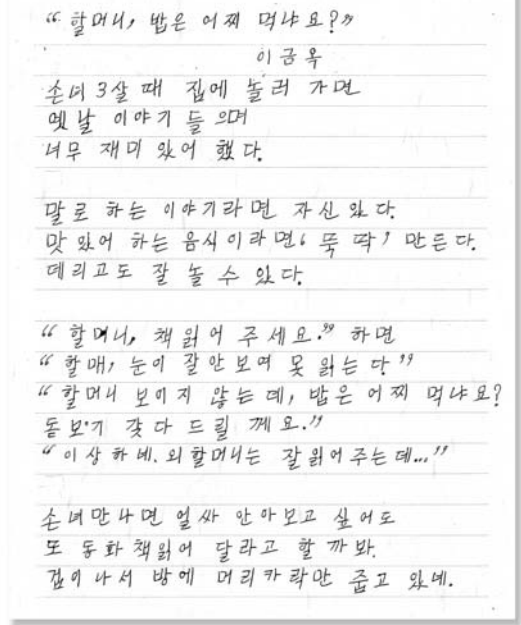 “할머니, 밥은 어찌 먹냐요?”
이금옥
손녀 3살 때 집에 놀러 가면
옛날 이야기 들으며
너무 재미 있어 했다.
말로 하는 이야기라면 자신 있다.
맛 있어 하는 음식이라면 ‘뚝 딱’ 만든다.
데리고도 잘 놀 수 있다.
“할머니, 책 읽어 주세요.” 하면
“할매, 눈이 잘 안 보여 못 읽는다”
“할머니 보이지 않는데, 밥은 어찌 먹냐요?
돋보기 갖다 드릴께요.”
“이상하네. 외할머니는 잘 읽어 주는데...”
손녀 만나면 얼싸 안아보고 싶어도
또 동화책 읽어 달라고 할까봐.
겁이 나서 방에 머리카락만 줍고 있네.